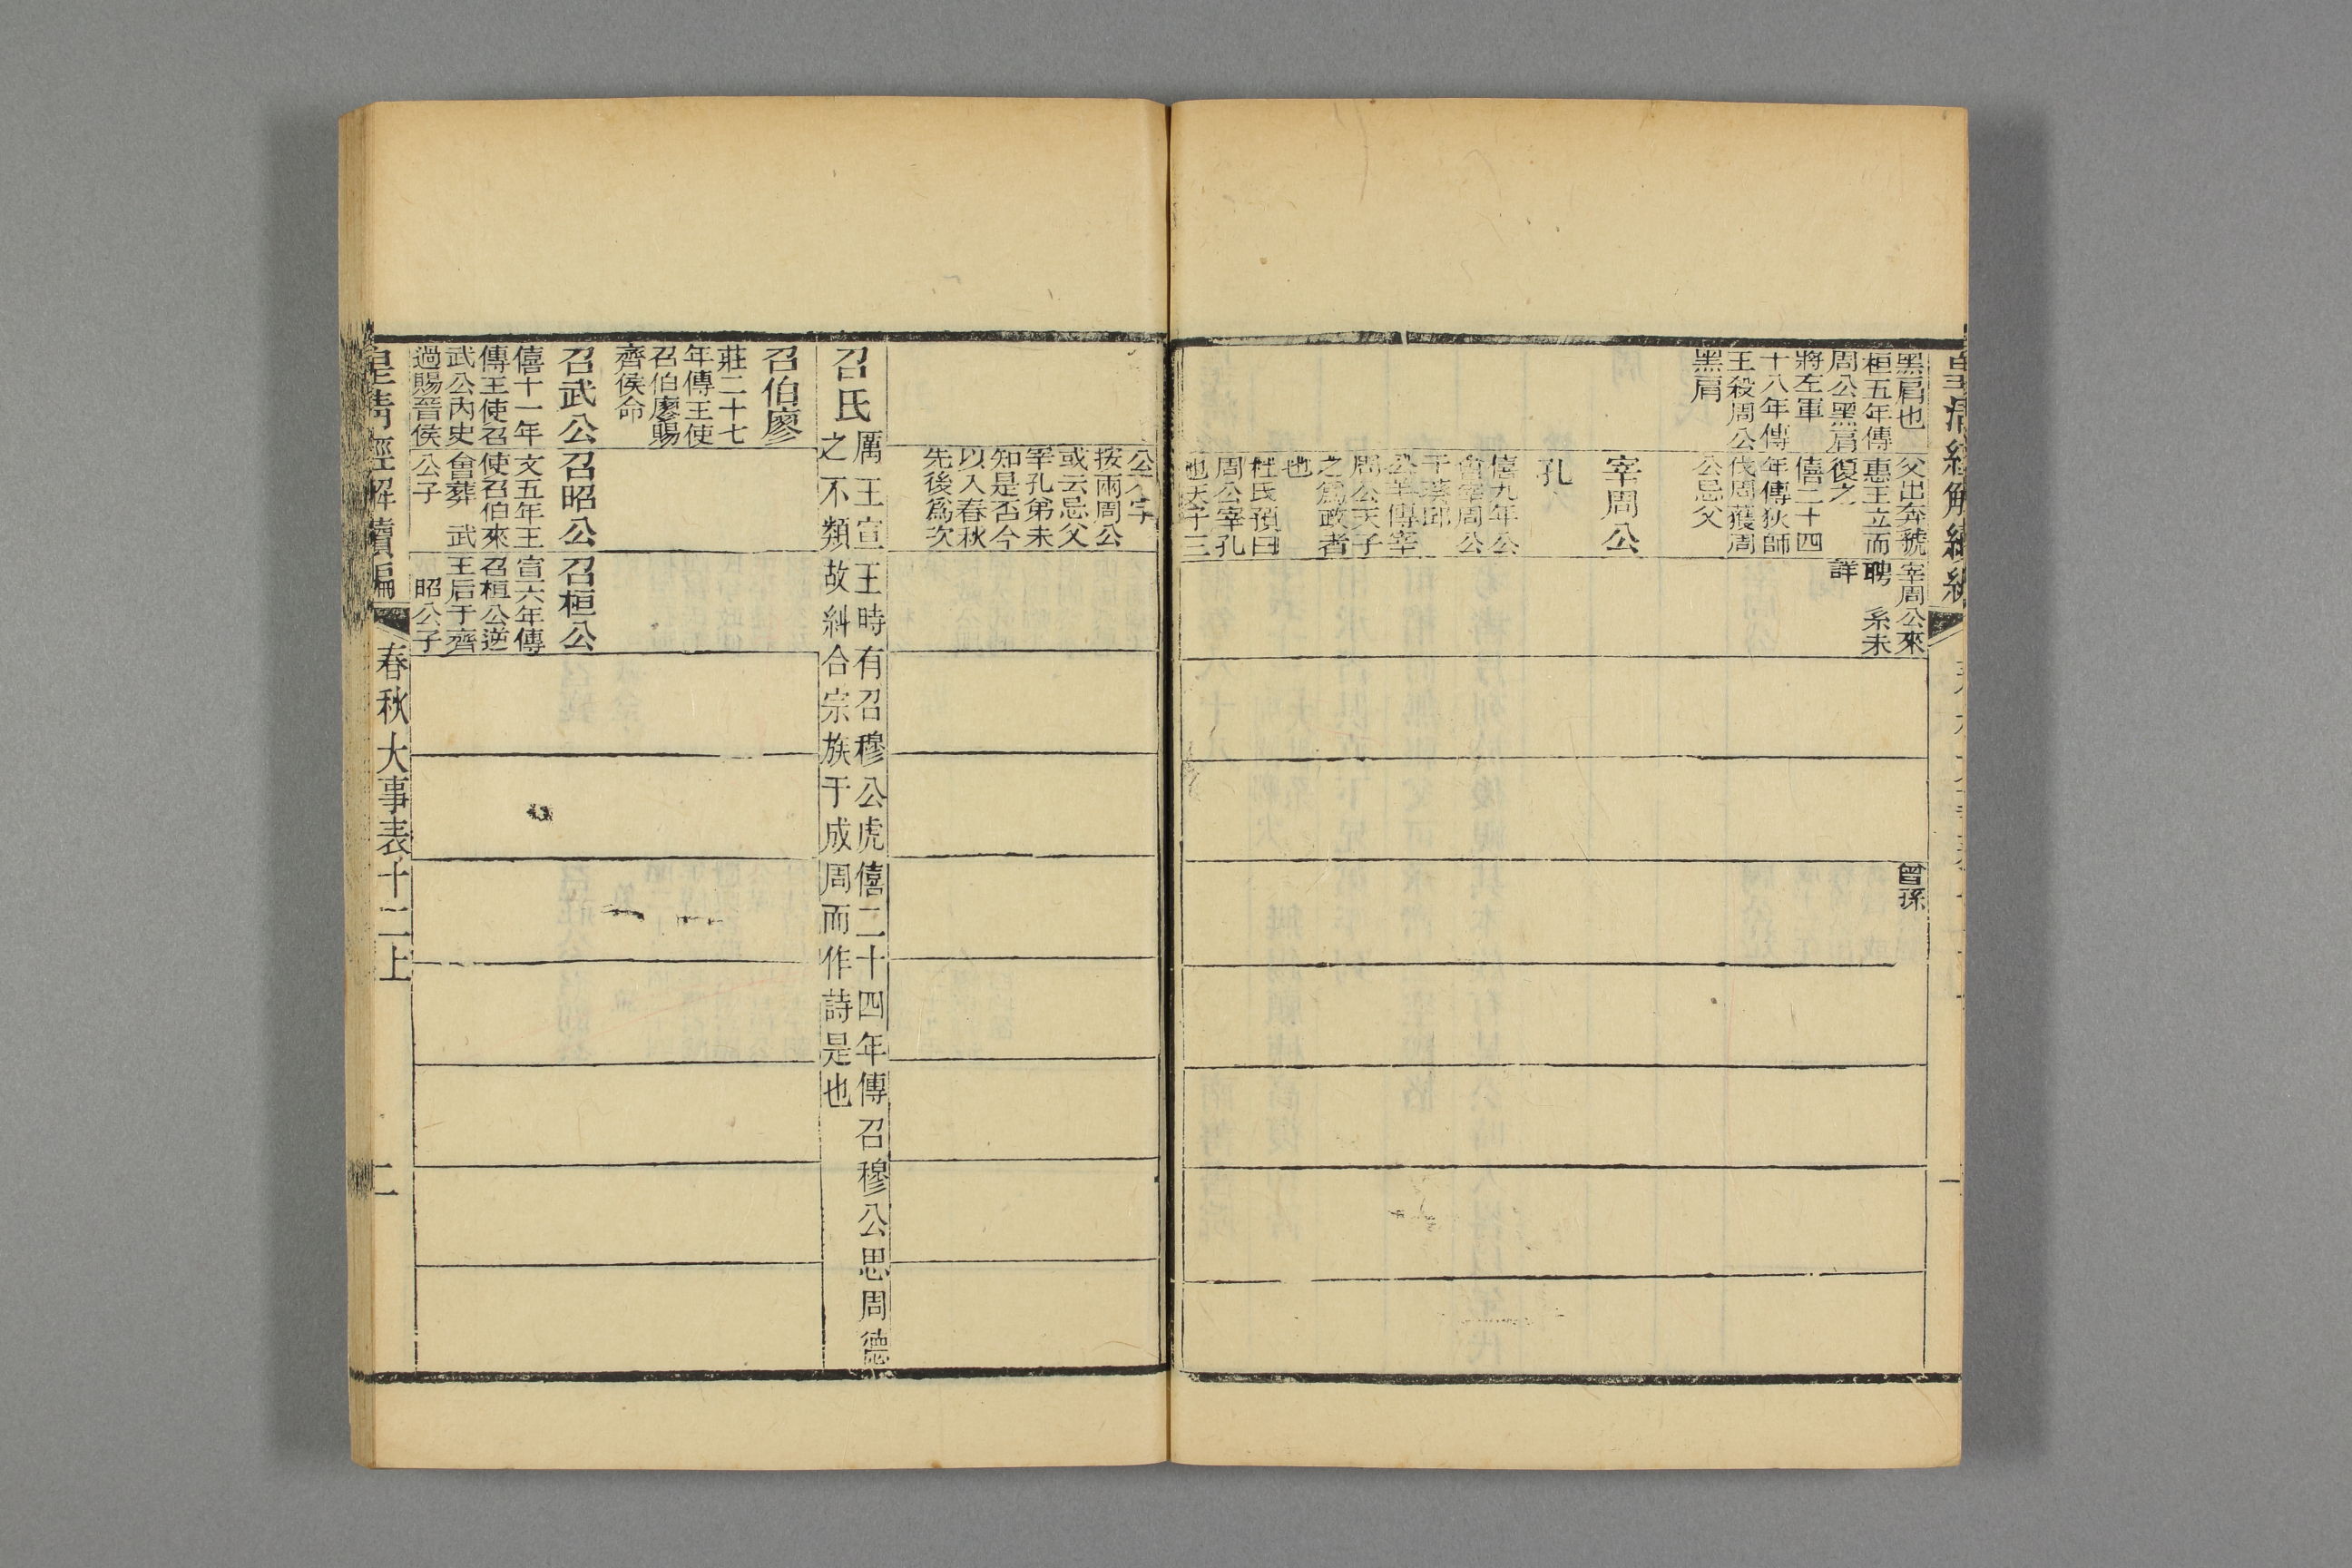 黑肩也
桓五年傳
周公黑肩
將左軍
十八年傳
王殺周公
黑肩
父出奔虢
惠王立而
復之
僖二十四
年傳狄師
伐周獲周
公忌父
宰周公來
聘 系未
詳
曾孫
宰周公
孔
僖九年公
會宰周公
于葵邱
公羊傳宰
周公天子
之爲政者
也
杜氏預曰
周公宰孔
也天子三
公
按兩周公
或云忌父
宰孔弟未
知是否今
以入春秋
先後爲次
召氏
厲王宣王時有召穆公虎僖二十四年傳召穆公思周德
之不類故糾合宗族于成周而作詩是也
召伯廖
莊二十七
年傳王使
召伯廖賜
齊侯命
召武公
僖十一年
傳王使召
武公內史
過賜晉侯
召昭公
文五年王
使召伯來
會葬 武
公子
召桓公
宣六年傳
召桓公逆
王后于齊
昭公子
皇清經解續編
春秋大事表十二上
二